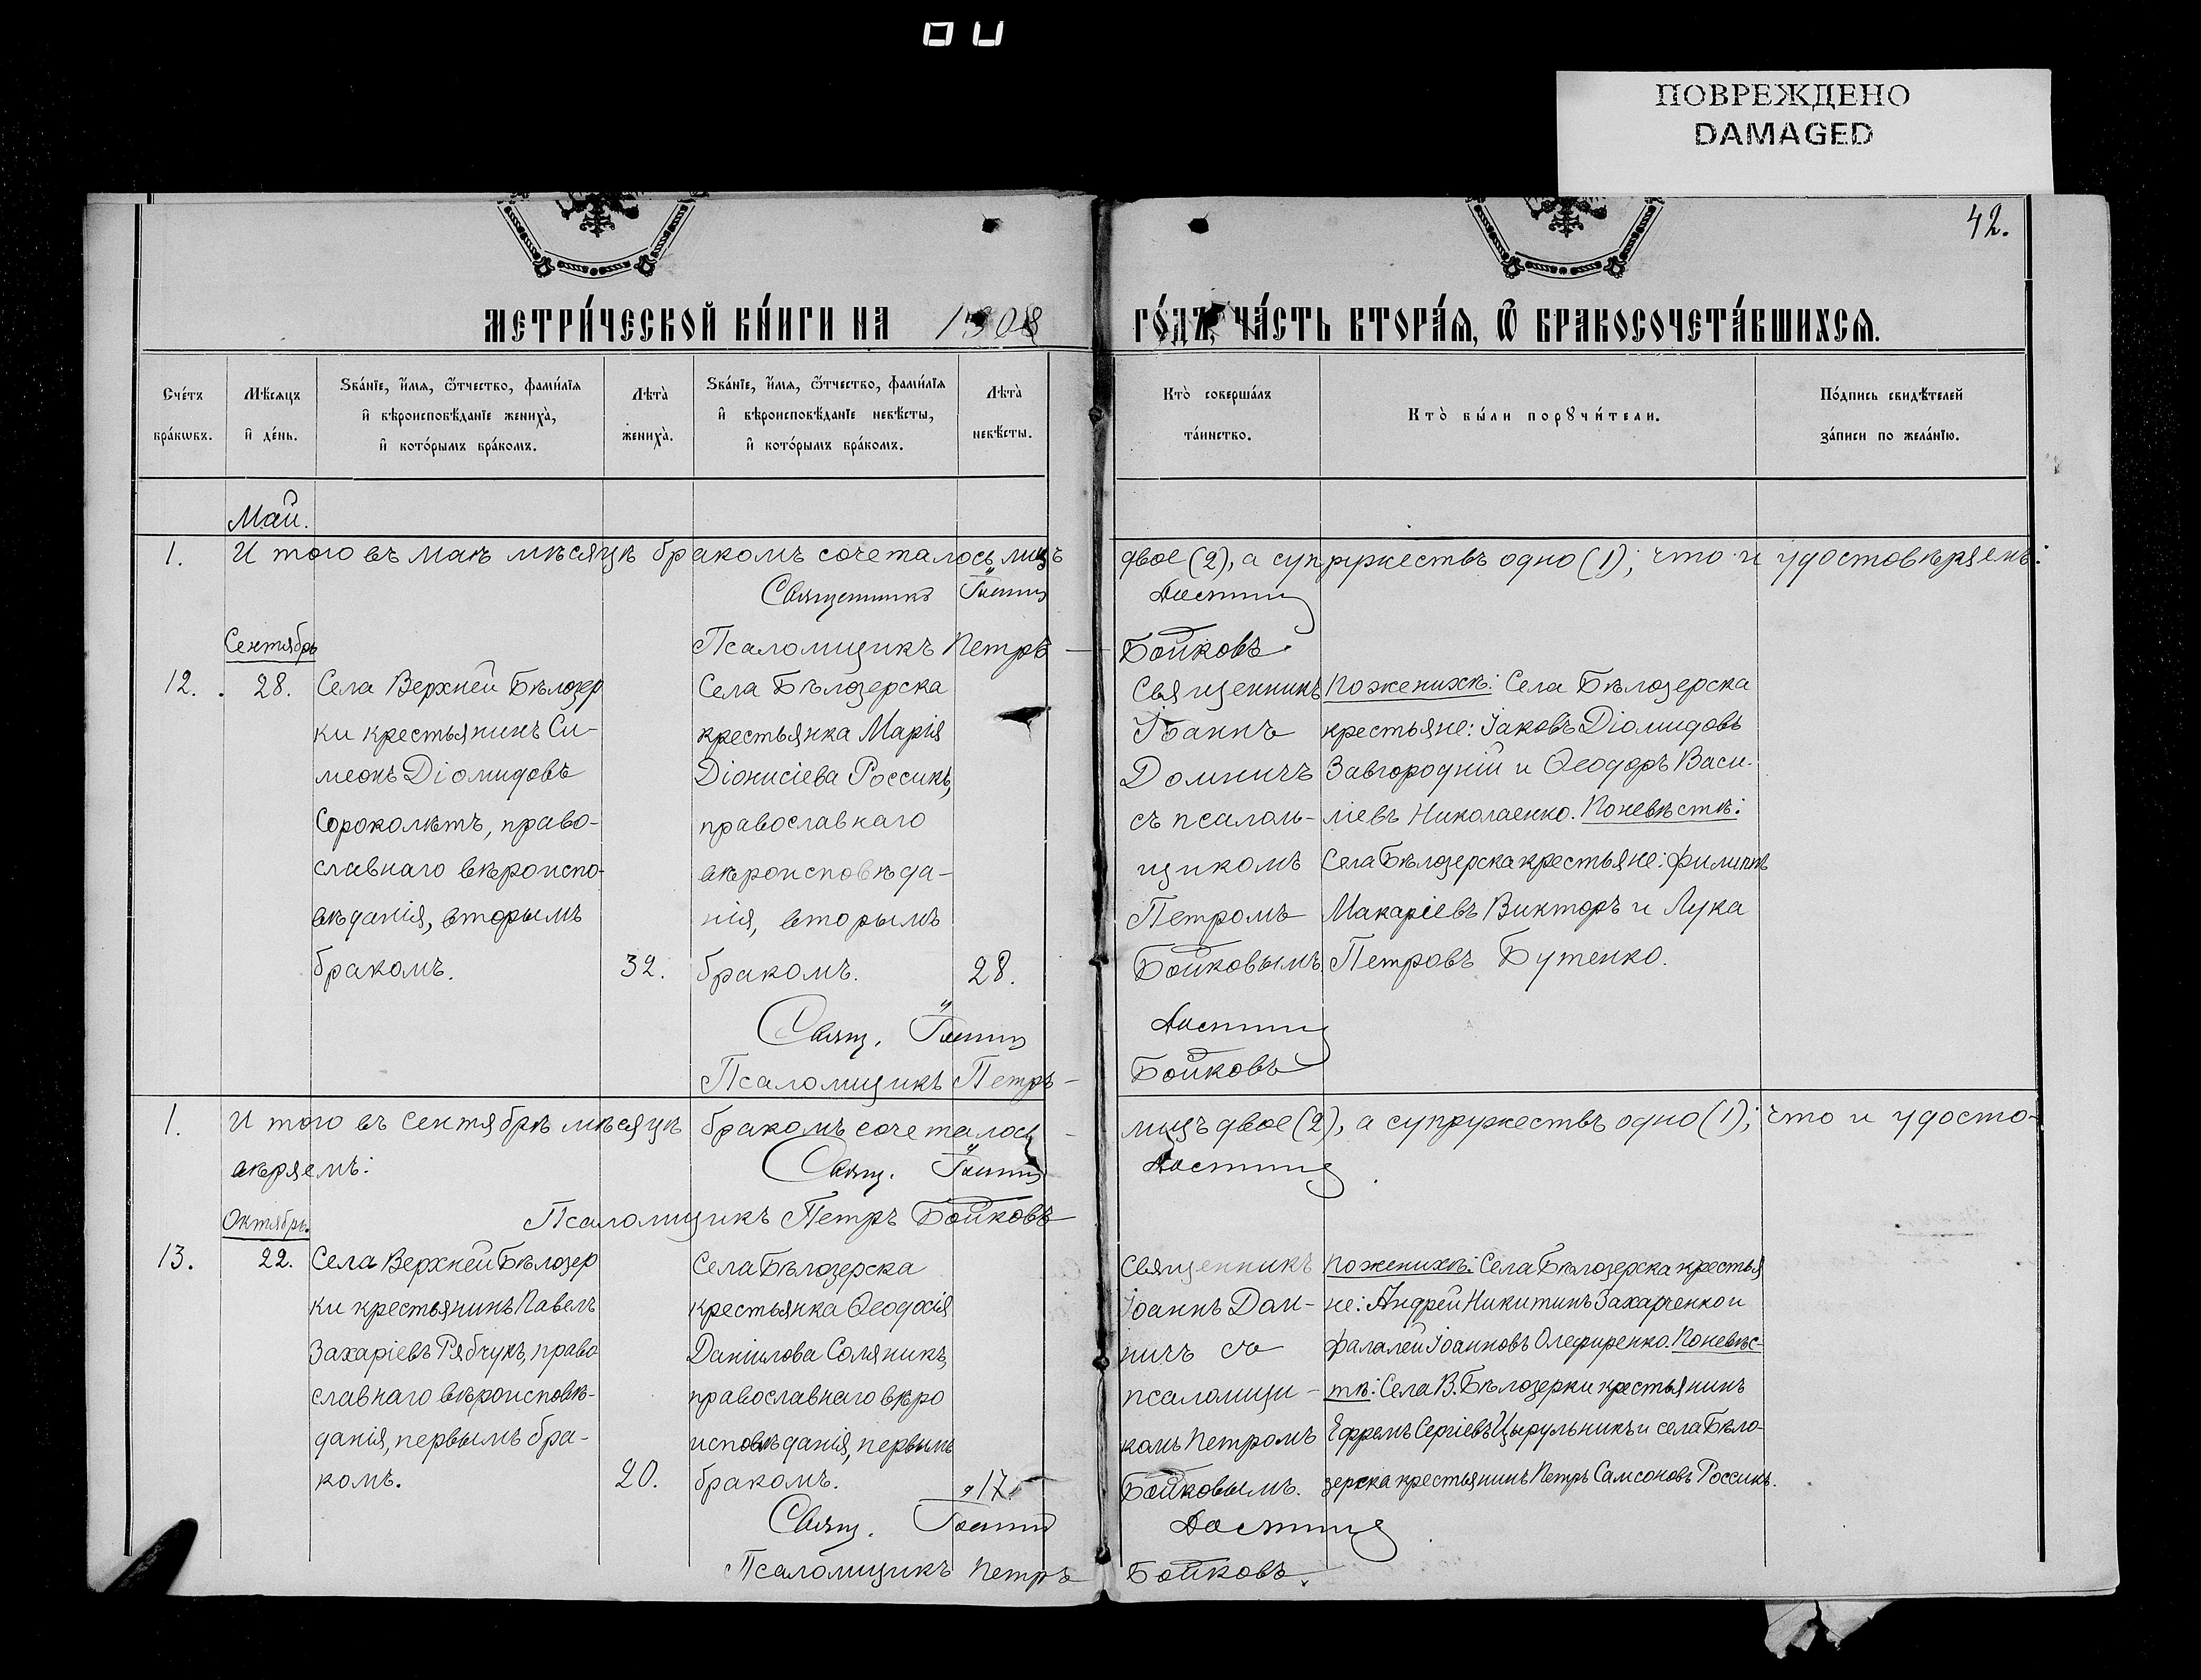 ПОВРЕЖДЕНО
DAMAGED
42.
МЕТРИ́ЧЕСКОЙ КНИ́ГИ НА 1908 ГО́ДЪ, ЧА́СТЬ ВТОРА́Я, Ѿ БРАКОСОЧЕТА́ВШИХСЯ.
Сче́тъ
бра́кѡвъ.
Мѣ́сяцъ
и҆ де́нь.
Ѕва́нїе, и҆́мя, ѻ҆́тчество, фами́лїя
и҆ вѣроисповѣ́данїе жениха̀,
и҆ кото́рымъ бра́комъ.
Лѣта̀
жениха̀.
Ѕва́нїе, и҆́мя, ѻ҆́тчество, фами́лїя
и҆ вѣроисповѣ́данїе невѣ́сты,
и҆ кото́рымъ бра́комъ.
Лѣта̀
невѣ́сты.
Кто̀ соверша́лъ
та́инство.
Кто̀ бы́ли порꙋчи́тели.
По́дпись свидѣ́телей
за́писи по жела́нїю.
Май.
1. И того въ маѣ мѣсяцѣ бракомъ сочеталось лицъ двое (2), а супружествъ одно (1); что и удостовѣряемъ:
Священникъ Іоаннъ Домнич
Псаломщикъ Петръ — Бойковъ.
Сентябрь
12. 28.
Села Верхней Бѣлозер
ки крестьянинъ Си-
меонъ Діомидовъ
Сороколѣтъ, право-
славнаго вѣроиспо-
вѣданія, вторымъ
бракомъ.
32.
Села Бѣлозерска
крестьянка Марія
Діонисіева Россикъ,
православнаго
вѣроисповѣда-
нія, вторымъ
бракомъ.
28.
Священникъ
Іоаннъ
Домничъ
съ псалом-
щикомъ
Петромъ
Бойковымъ.
По женихѣ: Села Бѣлозерска
крестьяне: Іаковъ Діомидовъ
Завгородній и Ѳеодоръ Васи-
ліевъ Николаенко. По невѣстѣ:
Села Бѣлозерска крестьяне: Филиппъ
Макаріевъ Викторъ и Лука
Петровъ Бутенко.
Свящ. Іоаннъ Домнич
Псаломщикъ Петръ — Бойковъ
1. И того въ Сентябрѣ мѣсяцѣ бракомъ сочеталось — лицъ двое (2), а супружествъ одно (1); что и удосто-
вѣряемъ:
Свящ. Іоаннъ Домнич
Псаломщикъ Петръ Бойковъ
Октябрь.
13. 22.
Села Верхней Бѣлозер
ки крестьянинъ Павелъ
Захаріевъ Рябчукъ, право
славнаго вѣроисповѣ-
данія, первымъ бра-
комъ.
20.
Села Бѣлозерска
крестьянка Ѳеодосія
Даніилова Соляникъ,
православнаго вѣро
исповѣданія, первымъ
бракомъ.
17.
Священникъ
Іоаннъ Дом-
ничъ съ
псаломщи-
комъ Петромъ
Бойковымъ.
По женихѣ: Села Бѣлозерска крестья
не: Андрей Никитинъ Захарченко и
Фалалей Іоанновъ Олефиренко. По невѣс-
тѣ: Села В. Бѣлозерки крестьянинъ
Ефремъ Сергіевъ Цырульникъ и села Бѣло-
зерска крестьянинъ Петръ Самсоновъ Россикъ.
Свящ. Іоаннъ Домнич
Псаломщикъ Петръ Бойковъ.